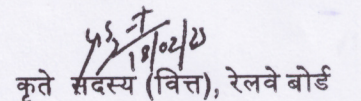 18/02/23
कृते सदस्य (वित्त), रेलवे बोर्ड